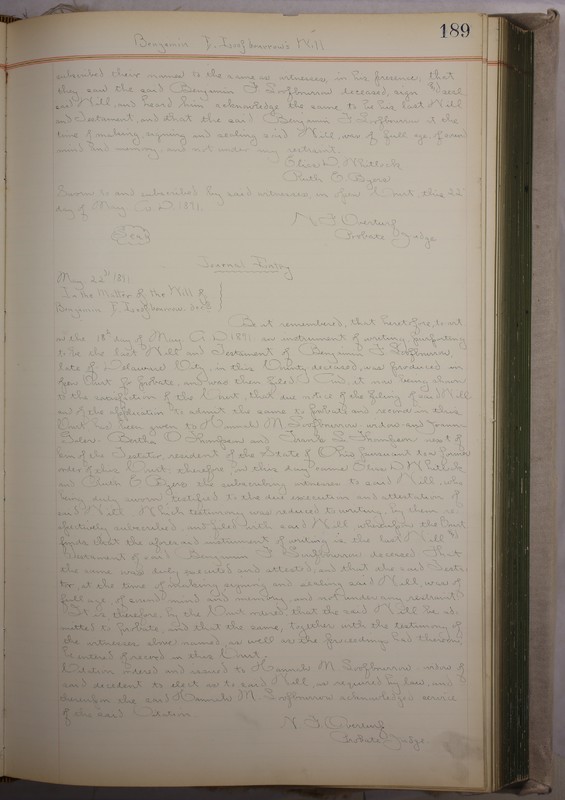 189
Benjamin F. Loofbourrow's Will
subscribed their names to the same as witnesses, in his presence; that
they saw the said Benjamin F Loofbourrow deceased, sign & seal
said Will, and heard him acknowledge the same to be his last Will
and Testament, and that the said Benjamin F Loofbourrow at the
time of making, signing and sealing said Will, was of full age, of sound
mind and memory, and not under any restraint.
D. Whitlock
Ruth E. Byers
Sworn to and subscribed by said witnesses, in open Court, this 22
day of May A. D. 1891.
N. F. Overturf
Probate Judge
Seal
Journal Entry
May 22nd 1891.
In the Matter of the Will of
Benjamin F. Loofbourrow, dec'd
Be it remembered, that heretofore, to wit
on the 18th day of May A. D. 1891, an instrument of writing, purporting
to be the last Will and Testament of Benjamin F Loofbourrow,
late of Delaware City, in this County deceased, was produced in
open Court for probate, and was then filed. And it now being shown
to the satisfaction of the Court, that due notice of the filing of said Will
and of the application to admit the same to probate and record in this
Court had been given to Hannah M. Loofbourrow widow and
Bertha O Thompson and Thompson next of
kin of the Testator, resident of the State of Ohio pursuant to a former
order of this Court: therefore, on this day came D Whitlock
and Ruth E Byers the subscribing witnesses to said Will, who
being duly sworn testified to the due execution and attestation of
said Will. Which testimony was reduced to writing, by them re-
spectively subscribed, and filed with said Will whereupon the Court
finds that the aforesaid instrument of writing is the last Will &
Testament of said Benjamin F. Loofbourrow deceased. That
the same was duly executed and attested, and that the said Testa-
tor, at the time of making signing and sealing said Will, was of
full age, of sound mind and memory, and not under any restraint.
It is therefore, by the Court ordered that the said Will be ad-
mitted to probate, and that the same, together with the testimony of
the witnesses above named, as well as the proceedings had therein
be entered of record in this Court.
Citation ordered and issued to Hannah M. Loofbourrow widow of
said decedent to elect as to said Will, as required by law, and
thereupon the said Hannah M. Loofbourrow acknowledges service
of the said Citation.
N. F. Overturf
Probate Judge